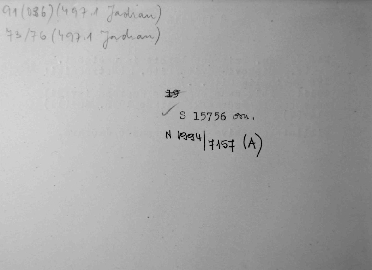 91(086)(497.1 Jadran)
73/76(497.1 Jadran)
19
S 15756 on.
N 1994/7157 (A)